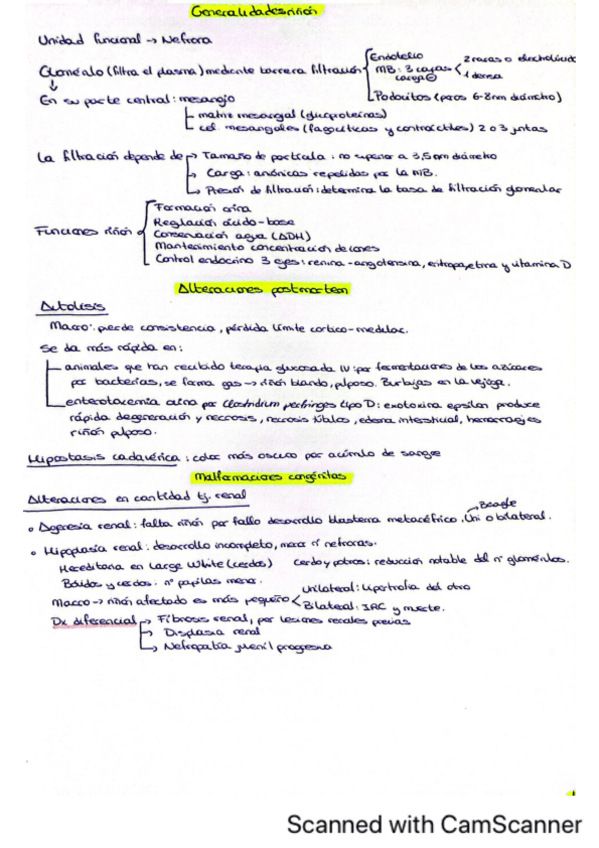 Generalidades riñón
Unidad funcional → Nefrona
Glomérulo (filtra el plasma) mediante barrera filtración
Endotelio
MB: 3 capas
carga ⊖
2 raras o electrolúcidas
1 densa
Podocitos (poros 6-8nm diámetro)
En su parte central: mesangio
matriz mesangial (glucoproteínas)
cel. mesangiales (fagocíticas y contráctiles) 2 o 3 juntas
La filtración depende de → Tamaño de partícula: no superior a 3,5nm diámetro
→ Carga: aniónicas repelidas por la MB.
→ Presión de filtración: determina la tasa de filtración glomerular
Funciones riñón
Formación orina
Regulación ácido-base
Conservación agua (ADH)
Mantenimiento concentración de iones
Control endocrino 3 ejes: renina-angiotensina, eritropoyetina y vitamina D
Alteraciones postmortem
Autolisis
Macro: pierde consistencia, pérdida límite cortico-medular.
Se da más rápida en:
animales que han recibido terapia glucosada IV: por fermentaciones de los azúcares
por bacterias, se forma gas → riñón blando, pulposo. Burbujas en la vejiga.
enterotoxemia ovina por Clostridium perfringes tipo D: exotoxina epsilon produce
rápida degeneración y necrosis, necrosis túbulos, edema intersticial, hemorragias
riñón pulposo.
Hipostasis cadavérica: color más oscuro por acúmulo de sangre
Malformaciones congénitas
Alteraciones en cantidad tj. renal
• Agenesia renal: falta riñón por fallo desarrollo blastema metanéfrico. Uni o bilateral.
→ Beagle
• Hipoplasia renal: desarrollo incompleto, menor nº nefronas.
Hereditaria en Large White (cerdos)
Cerdo y potros: reducción notable del nº glomérulos.
Bóvidos y cerdos: nº papilas menor.
Macro → riñón afectado es más pequeño
Unilateral: hipertrofia del otro
Bilateral: IRC y muerte.
Dx diferencial → Fibrosis renal, por lesiones renales previas
→ Displasia renal
→ Nefropatía juvenil progresiva
Scanned with CamScanner